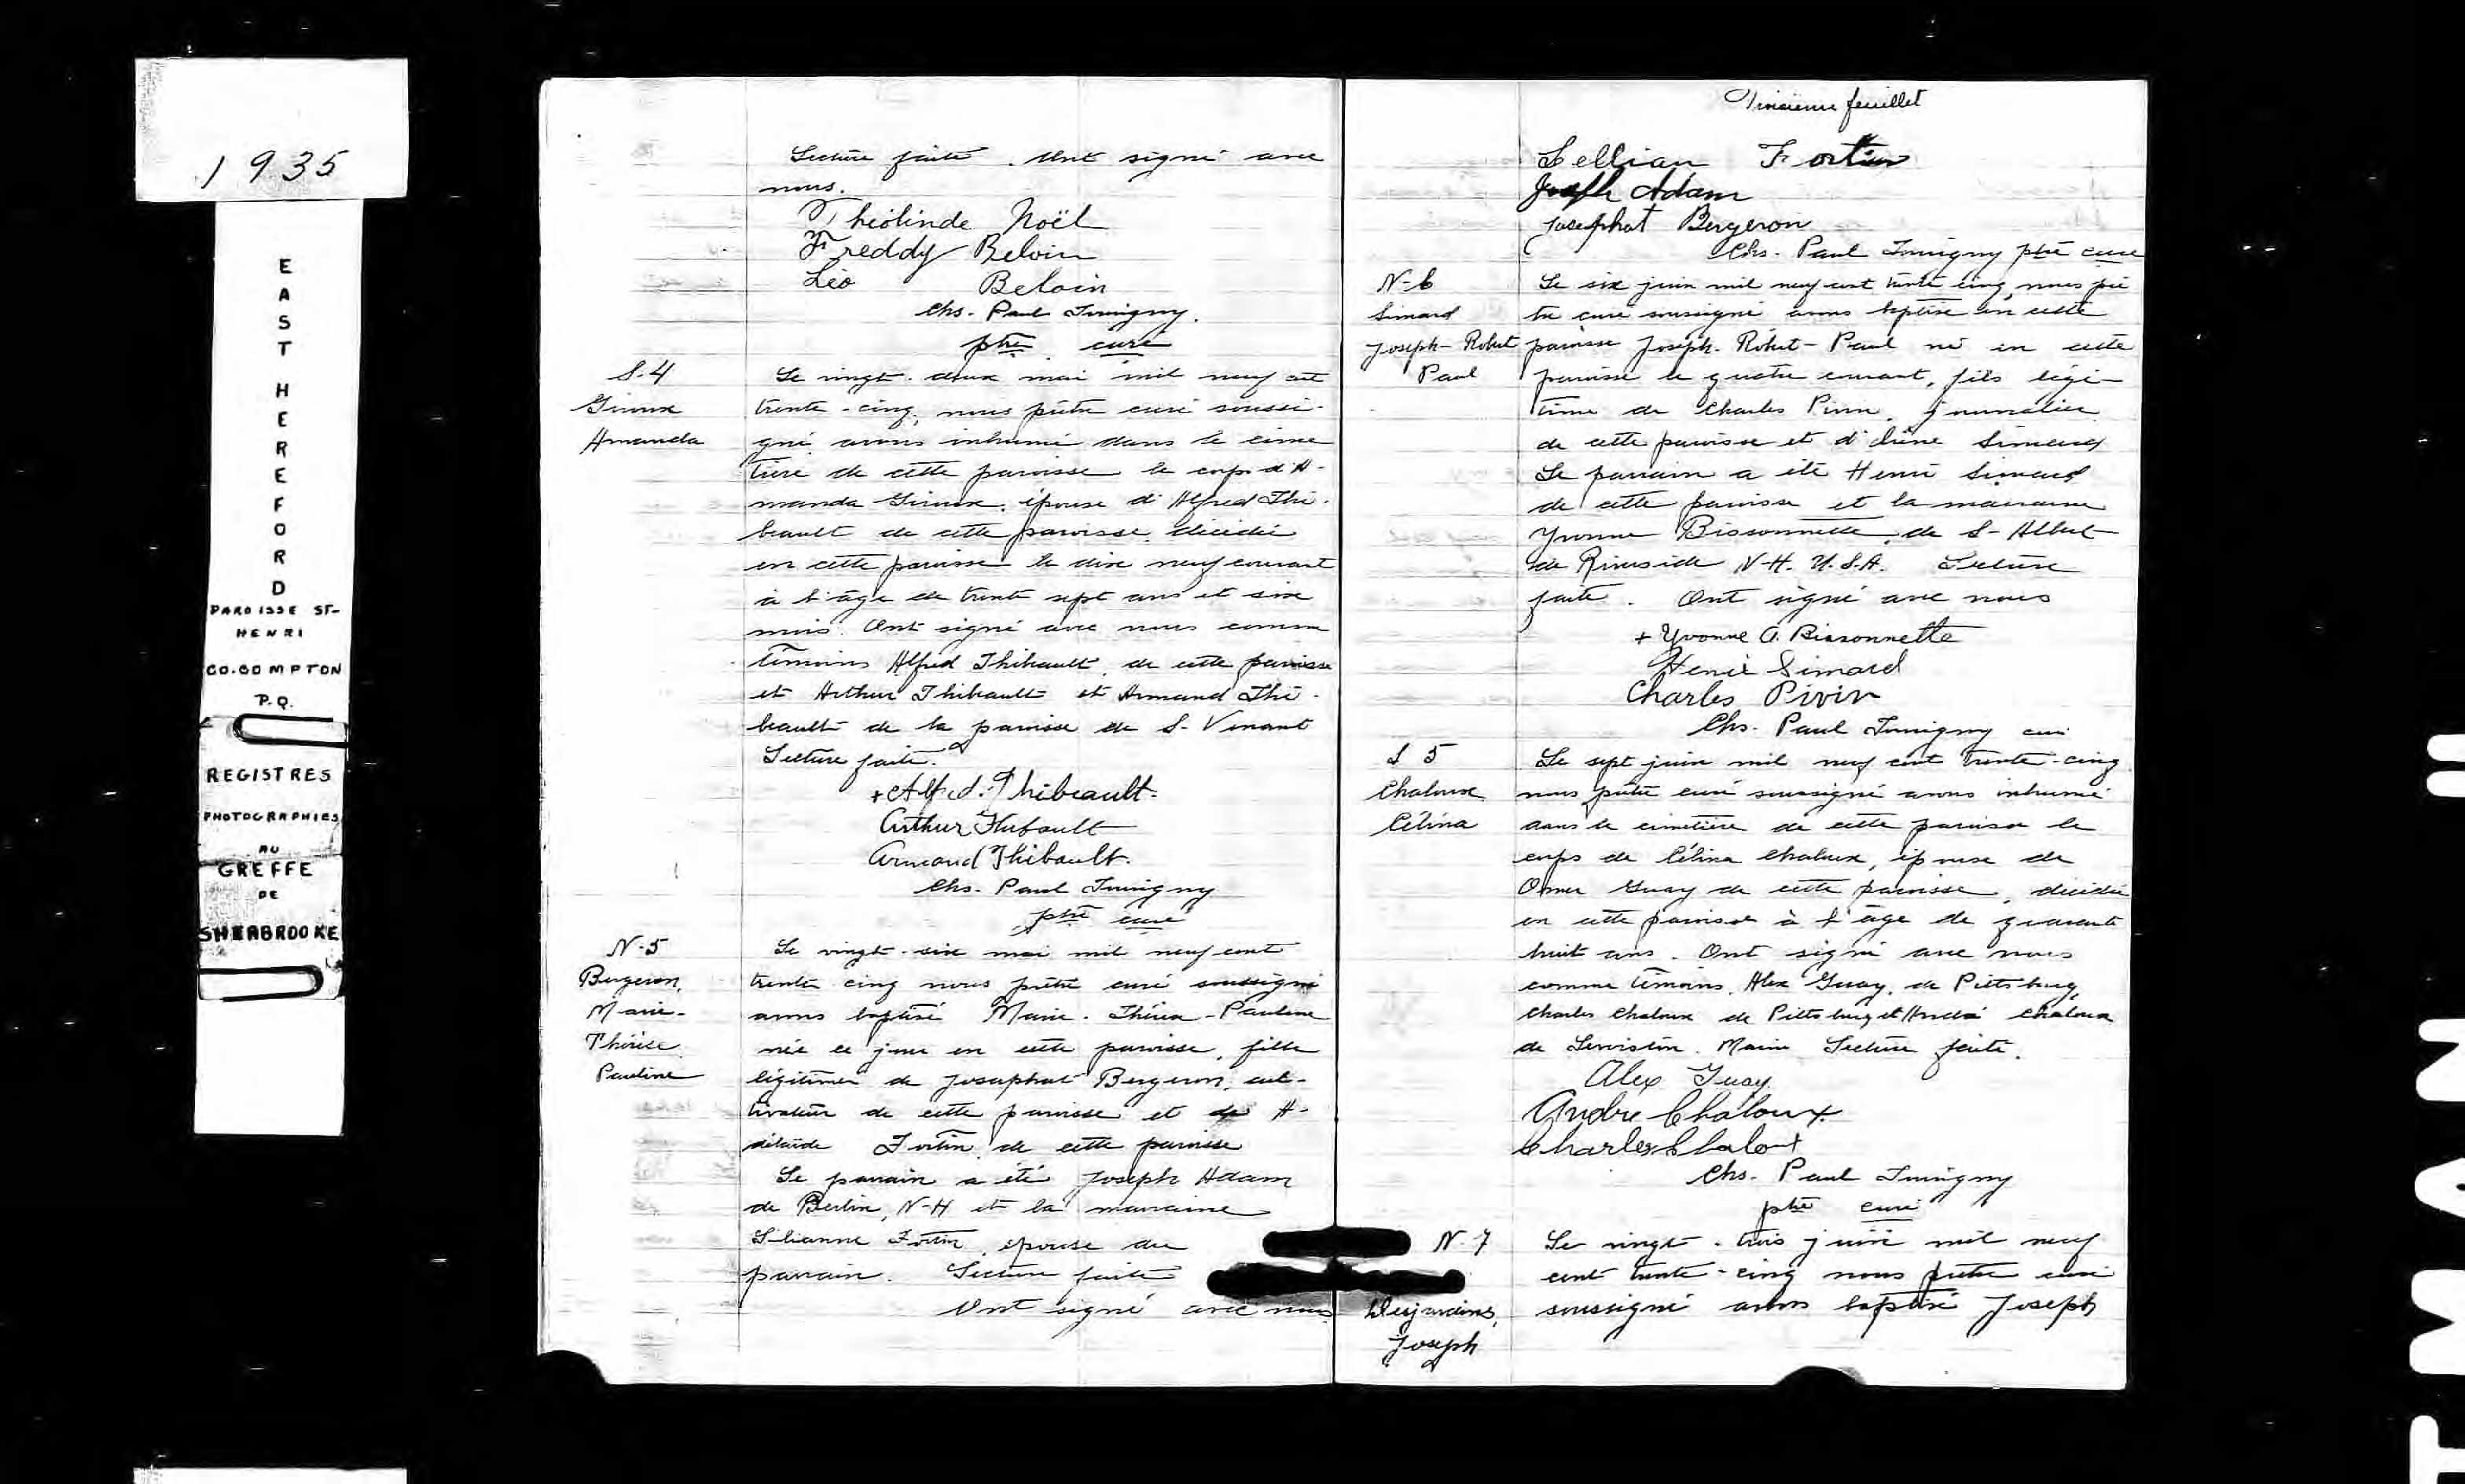 1935
EAST HEREFORD
PAROISSE ST-
HENRI
CO. COMPTON
P.Q.
REGISTRES
PHOTOGRAPHIES
AU
GREFFE
DE
SHERBROOKE
Lecture faite. Ont signé avec
nous.
Théolinde Noël
Freddy Beloin
Léo Beloin
Chs. Paul
ptre curé
S.4
Giroux
Amanda
Le vingt-deux mai mil neuf cent
trente-cinq, nous prêtre curé soussi-
gné avons inhumé dans le cime
tière de cette paroisse le corps d'A-
manda Giroux, épouse d'Alfred Thi-
beault de cette paroisse, décédée
en cette paroisse le dix neuf courant
à l'âge de trente sept ans et six
mois. Ont signé avec nous comme
témoins Alfred Thibault, de cette paroisse
et Arthur Thibault et Armand Thi-
beault de la paroisse de S-Venant
Lecture faite.
+ Alfred Thibeault.
Arthur Thibault
Armand Thibault.
Chs. Paul
ptre curé
N-5
Bergeron,
Marie-
Thérèse
Pauline
Le vingt-six mai mil neuf cent
trente cinq nous prêtre curé soussigné
avons baptisé Marie-Thérèse-Pauline
née ce jour en cette paroisse, fille
légitime de Josaphat Bergeron, cul-
tivateur de cette paroisse et de A-
délaïde Fortin de cette paroisse
Le parrain a été Joseph Adam
de Berlin, N-H et la marraine
Fortin, épouse du
parrain. Lecture faite
Ont signé avec nous
Troisième feuillet
Lellian Fortier
Joseph Adam
Josaphat Bergeron
Chs. Paul ptre curé
N-6
Simard
Joseph-Robert
Paul
Le six juin mil neuf cent trente cinq, nous prê
tre curé soussigné avons baptisé en cette
paroisse Joseph-Robert-Paul né en cette
paroisse le quatre courant, fils légi-
time de Charles Pivin, journalier
de cette paroisse et d'Aline Simard
Le parrain a été Henri Simard
de cette paroisse et la marraine
Yvonne Bissonnette, de S-Albert
de Riverside N-H. U.S.A. Lecture
faite. Ont signé avec nous
+ Yvonne A. Bissonnette
Henri Simard
Charles Pivin
Chs. Paul curé
S 5
Chaloux
Célina
Le sept juin mil neuf cent trente-cinq
nous prêtre curé soussigné avons inhumé
dans le cimetière de cette paroisse le
corps de Célina Chaloux, épouse de
Omer Guay de cette paroisse, décédée
en cette paroisse à l'âge de quarante
huit ans. Ont signé avec nous
comme témoins, Alex Guay, de Pittsburg,
Charles Chaloux de Pittsburg et André Chaloux
de Lewiston. Maine Lecture faite.
Alex Guay
Andre Chaloux
Charles Chaloux
Chs. Paul
ptre curé
N-7
Desjardins,
Joseph
Le vingt-trois juin mil neuf
cent trente-cinq nous prêtre curé
soussigné avons baptisé Joseph